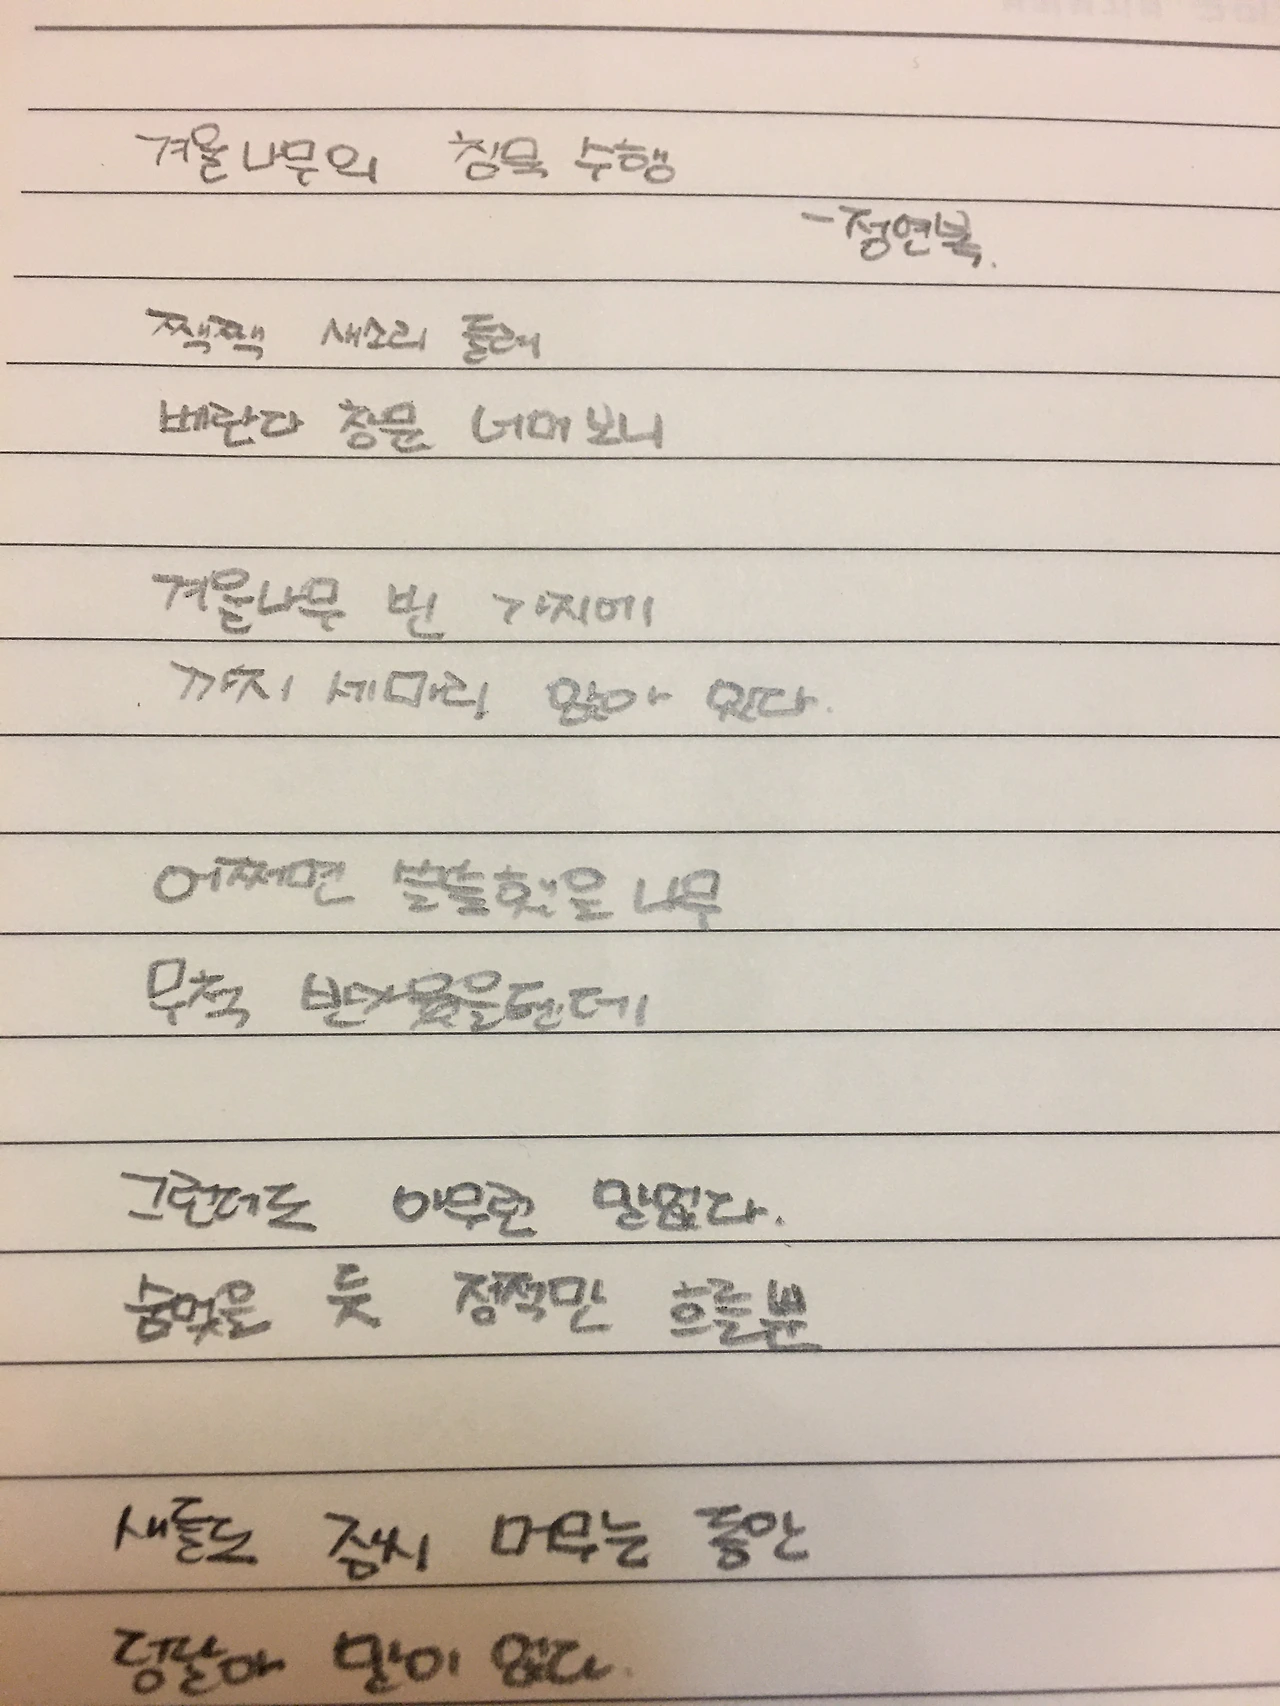 겨울나무의 침묵 수행
-정연복.
짹짹 새소리 들려
베란다 창문 너머 보니
겨울나무 빈 가지에
까치 세마리 앉아 있다.
어쩌면 쓸쓸했을 나무
무척 반가웠을텐데
그런데도 아무런 말없다.
숨멎을 듯 정적만 흐를뿐
새들도 잠시 머무는 동안
덩달아 말이 없다.